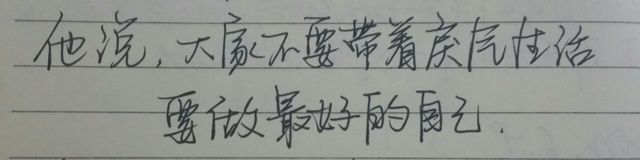 他说，大家不要带着戾气生活
要做最好的自己.